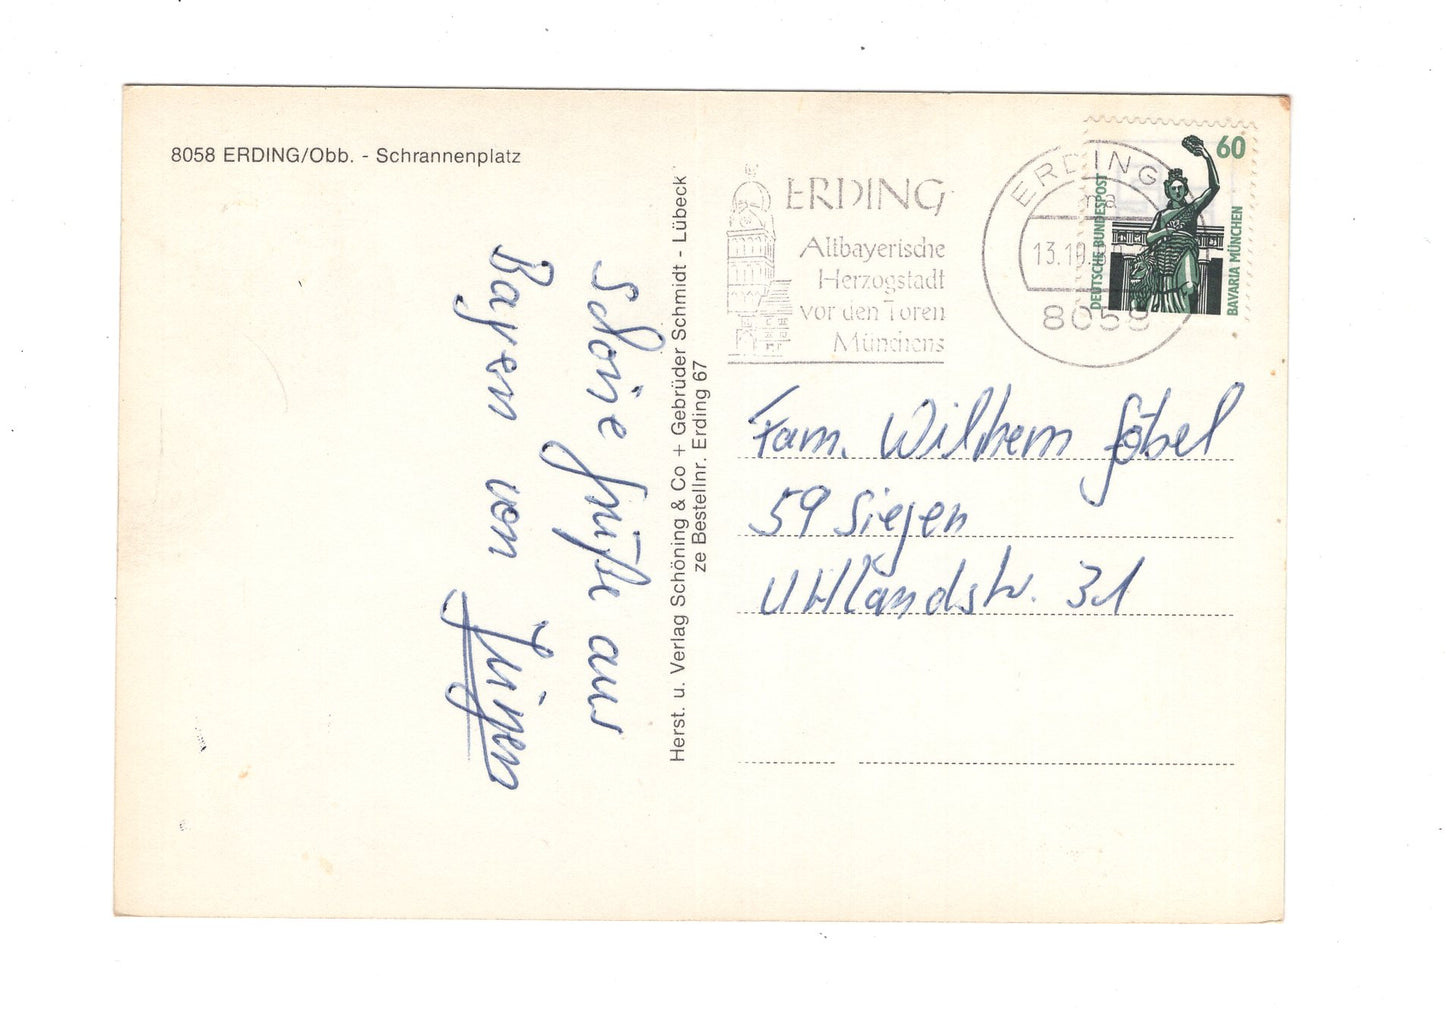 8058 ERDING/Obb. - Schrannenplatz
Schöne Grüße aus
Bayern von
Jürgen
Herst. u. Verlag Schöning & Co + Gebrüder Schmidt - Lübeck
ze Bestellnr. Erding 67
ERDING
Altbayerische
Herzogstadt
vor den Toren
Münchens
ERDING
ma
13.10.
8058
60
DEUTSCHE BUNDESPOST
BAVARIA MÜNCHEN
Fam. Wilhelm Göbel
59 Siegen
Uhlandstr. 31